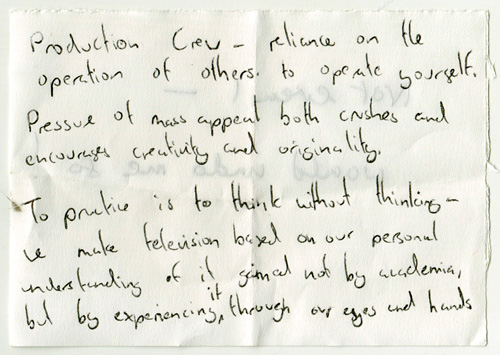 Production Crew - reliance on the
operation of others. to operate yourself.
Pressure of mass appeal both crushes and
encourages creativity and originality.
To practice is to think without thinking -
we make television based on our personal
understanding of it gained not by academia,
but by experiencing it, through our eyes and hands